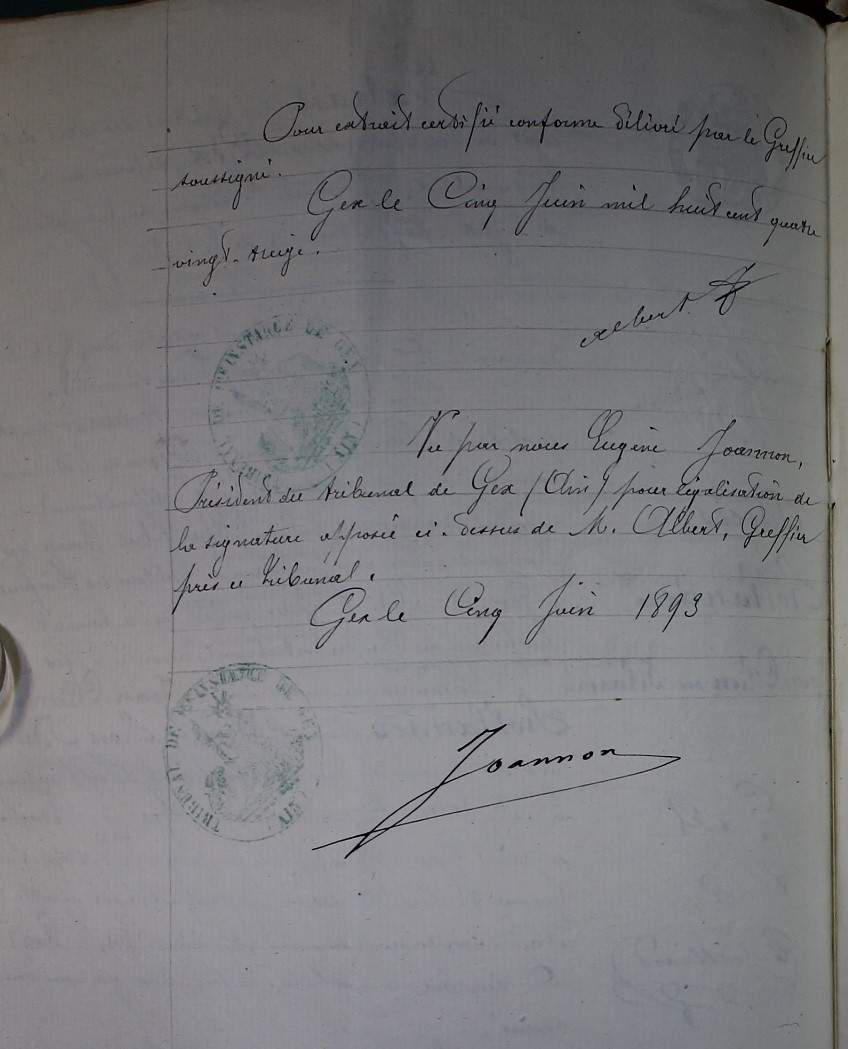 Pour extrait certifié conforme délivré par le Greffier
soussigné.
Gex le Cinq Juin mil huit cent quatre
vingt-treize.
Albert
TRIBUNAL DE 1RE INSTANCE DE GEX (AIN)
Vu par nous Eugène Joannon,
Président du tribunal de Gex (Ain) pour légalisation de
la signature apposée ci-dessus de M. Albert, Greffier
près ce tribunal.
Gex le Cinq Juin 1893
TRIBUNAL DE 1RE INSTANCE DE GEX (AIN)
Joannon